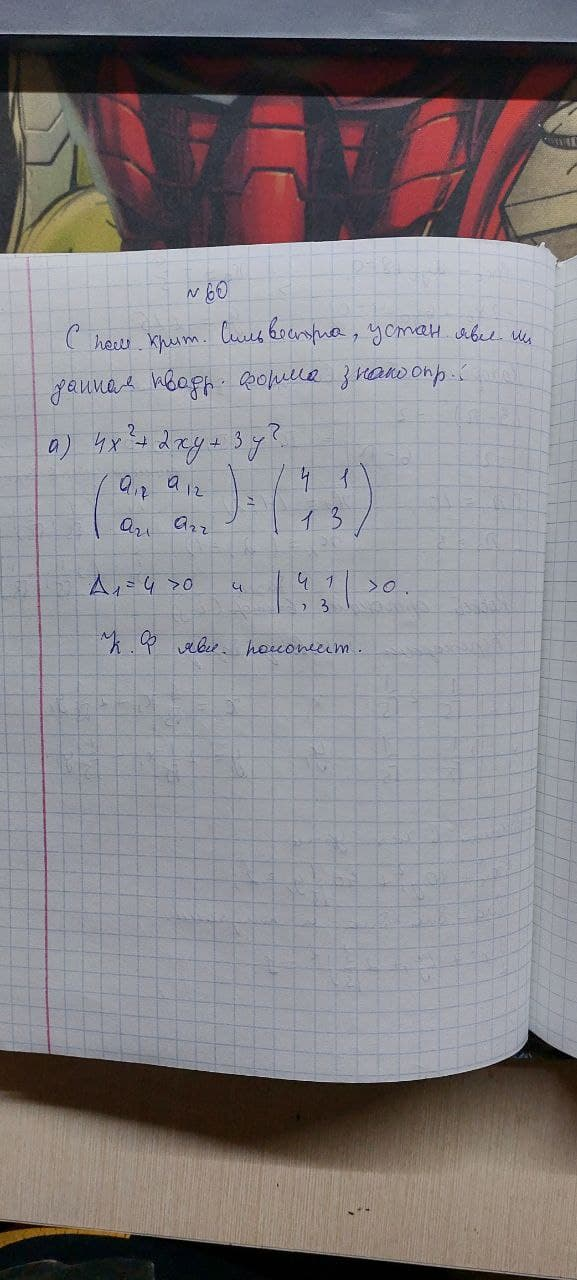 № 60
С пом. крит. Сильвестра, устан. явл. ли
данная квадр. форма знакоопр.:
а) 4x² + 2xy + 3y².
( a₁₂ a₁₂ a₂₁ a₂₂ ) = ( 4 1 1 3 )
Δ₁ = 4 > 0 и | 4 1 1 3 | > 0.
К. Ф явл. положит.